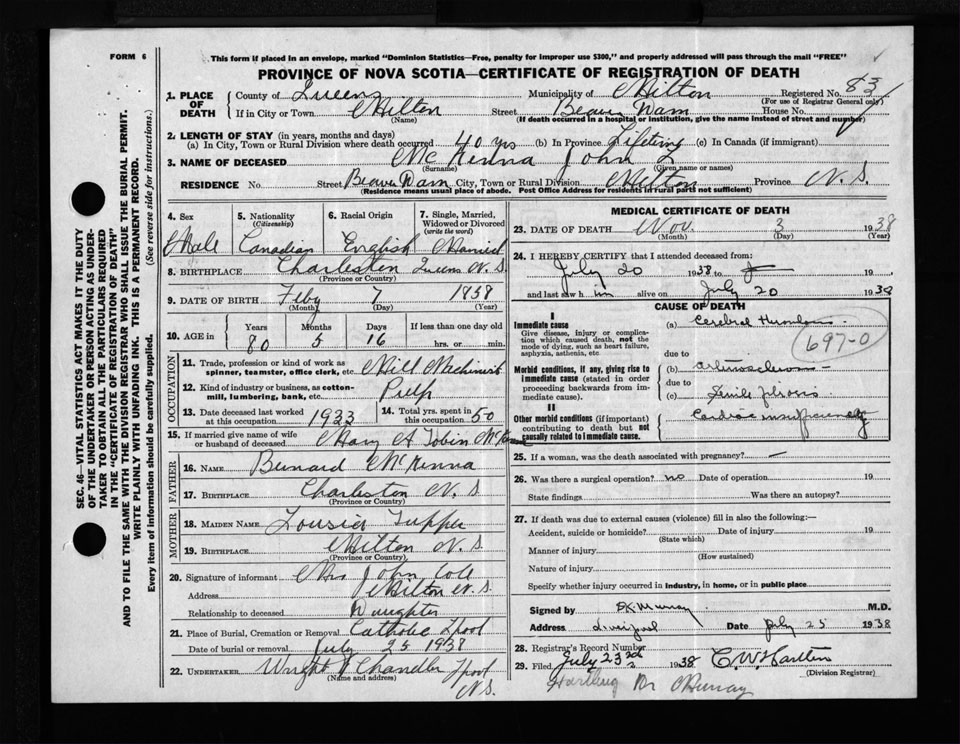 FORM 6
This form if placed in an envelope, marked "Dominion Statistics—Free, penalty for improper use $300," and properly addressed will pass through the mail "FREE"
PROVINCE OF NOVA SCOTIA—CERTIFICATE OF REGISTRATION OF DEATH
1. PLACE OF DEATH County of Queens Municipality of Milton Registered No. 83
(For use of Registrar General only)
If in City or Town Milton Street Beaver Dam House No.
(Name) (If death occurred in a hospital or institution, give the name instead of street and number)
2. LENGTH OF STAY (in years, months and days)
(a) In City, Town or Rural Division where death occurred 40 yrs (b) In Province Lifetime (c) In Canada (if immigrant)
3. NAME OF DECEASED McKenna John
(Surname) (Given name or names)
RESIDENCE No. Street Beaver Dam City, Town or Rural Division Milton Province N.S.
(Residence means usual place of abode. Post Office Address for residents in rural parts not sufficient)
SEC. 46—VITAL STATISTICS ACT MAKES IT THE DUTY OF THE UNDERTAKER OR PERSON ACTING AS UNDERTAKER TO OBTAIN ALL THE PARTICULARS REQUIRED IN THE "CERTIFICATE OF REGISTRATION OF DEATH"
AND TO FILE THE SAME WITH THE DIVISION REGISTRAR WHO SHALL ISSUE THE BURIAL PERMIT.
WRITE PLAINLY WITH UNFADING INK. THIS IS A PERMANENT RECORD.
Every item of information should be carefully supplied. (See reverse side for instructions.)
4. Sex Male
5. Nationality (Citizenship) Canadian
6. Racial Origin English
7. Single, Married, Widowed or Divorced (write the word) Married
8. BIRTHPLACE Charleston Queens N.S.
(Province or Country)
9. DATE OF BIRTH Feby 7 1858
(Month) (Day) (Year)
10. AGE in Years 80 Months 5 Days 16 If less than one day old hrs. or min.
OCCUPATION
11. Trade, profession or kind of work as spinner, teamster, office clerk, etc. Mill Machinist
12. Kind of industry or business, as cotton-mill, lumbering, bank, etc. Pulp
13. Date deceased last worked at this occupation 1933
14. Total yrs. spent in this occupation 50
15. If married give name of wife or husband of deceased Mary A Tobin
FATHER
16. NAME Bernard McKenna
17. BIRTHPLACE Charleston N.S
(Province or Country)
MOTHER
18. MAIDEN NAME Tupper
19. BIRTHPLACE Milton N.S.
(Province or Country)
20. Signature of informant Mrs John Cole
Address Milton N.S.
Relationship to deceased Daughter
21. Place of Burial, Cremation or Removal Catholic Lpool
Date of burial or removal July 25 1938
22. UNDERTAKER Wright & Chandler Lpool N.S.
(Name and address)
MEDICAL CERTIFICATE OF DEATH
23. DATE OF DEATH Nov. 3 1938
(Month) (Day) (Year)
24. I HEREBY CERTIFY that I attended deceased from:
July 20 1938 to 19
and last saw h im alive on July 20 1938
CAUSE OF DEATH
I
Immediate cause
Give disease, injury or complication which caused death, not the mode of dying, such as heart failure, asphyxia, asthenia, etc.
(a) Cerebral
697-0
due to
Morbid conditions, if any, giving rise to immediate cause (stated in order proceeding backwards from immediate cause).
(b)
due to
(c) Senile
II
Other morbid conditions (if important) contributing to death but not causally related to immediate cause.
Cardiac insufficiency
25. If a woman, was the death associated with pregnancy? —
26. Was there a surgical operation? no Date of operation 19
State findings Was there an autopsy?
27. If death was due to external causes (violence) fill in also the following:—
Accident, suicide or homicide? Date of injury 19
(State which)
Manner of injury
(How sustained)
Nature of injury
Specify whether injury occurred in industry, in home, or in public place
Signed by Murray M.D.
Address Liverpool Date July 25 1938
28. Registrar's Record Number
29. Filed July 23rd 1938 C. W. Hartlen
(Division Registrar)
Dr Murray